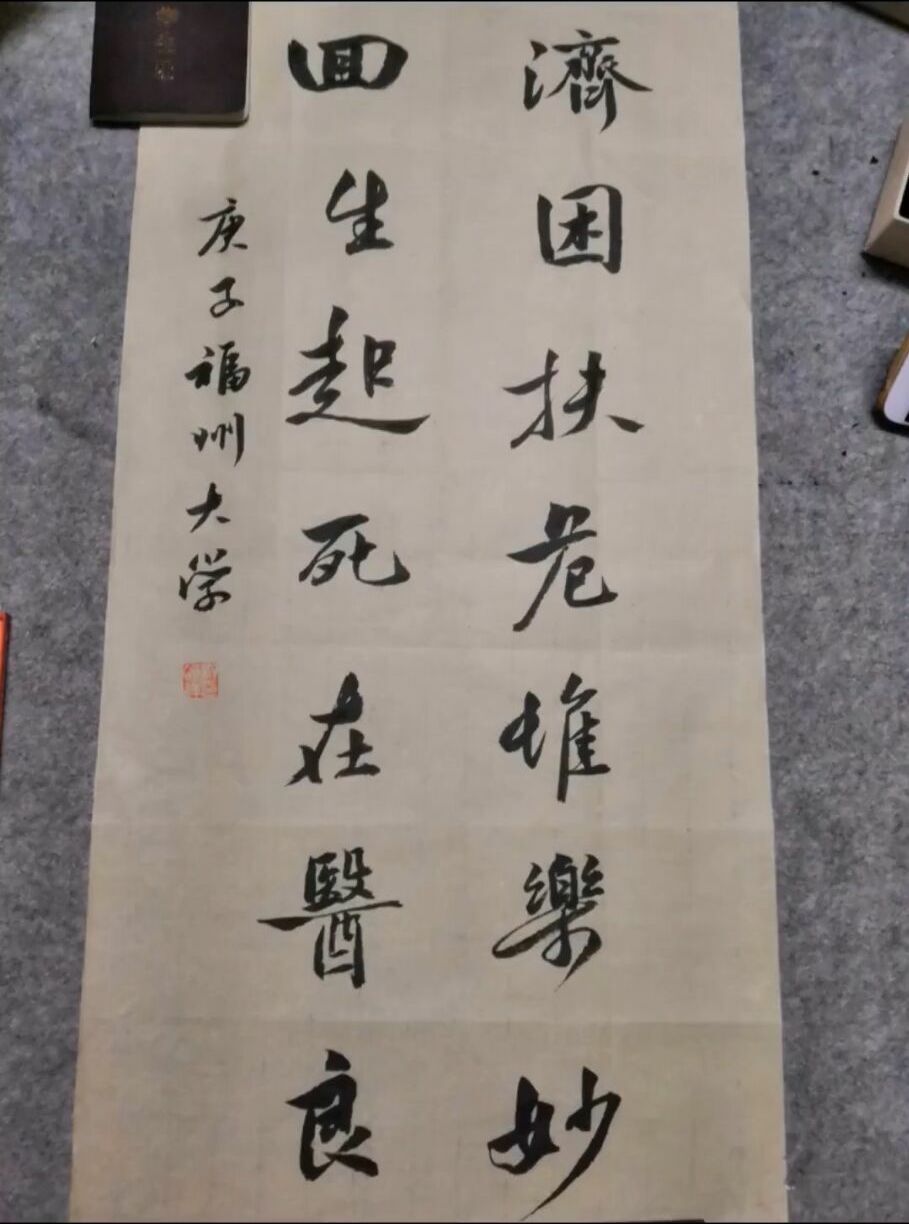 濟困扶危堆樂妙
回生起死在醫良
庚子福州大学